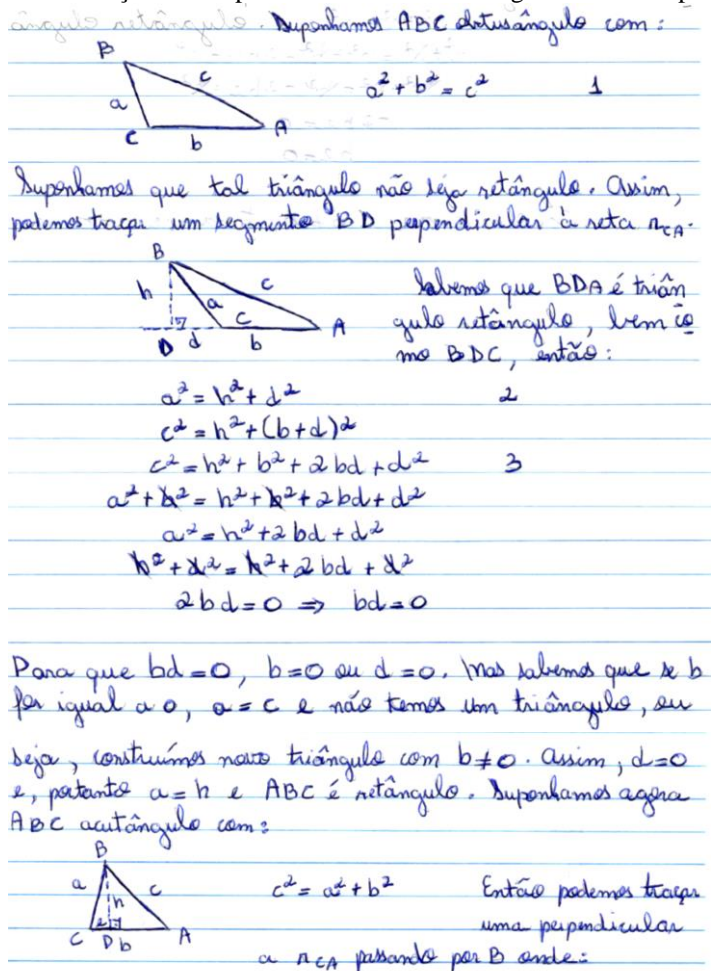 ângulo retângulo. Suponhamos ABC obtusângulo com:
B
c
a² + b² = c² 1
a
C b A
Suponhamos que tal triângulo não seja retângulo. Assim,
podemos traçar um segmento BD perpendicular à reta r_CA.
B
h a c
D d C b A
Sabemos que BDA é triân
gulo retângulo, bem co
mo BDC, então:
a² = h² + d² 2
c² = h² + (b+d)²
c² = h² + b² + 2bd + d² 3
a² + b² = h² + b² + 2bd + d²
a² = h² + 2bd + d²
h² + d² = h² + 2bd + d²
2bd = 0 ⇒ bd = 0
Para que bd = 0, b = 0 ou d = 0. Mas sabemos que se b
for igual a 0, a = c e não temos um triângulo, ou
seja, construímos novo triângulo com b ≠ 0. Assim, d = 0
e, portanto a = h e ABC é retângulo. Suponhamos agora
ABC acutângulo com:
B
a h c
C D b A
c² = a² + b² Então podemos traçar
uma perpendicular
a r_CA passando por B onde: